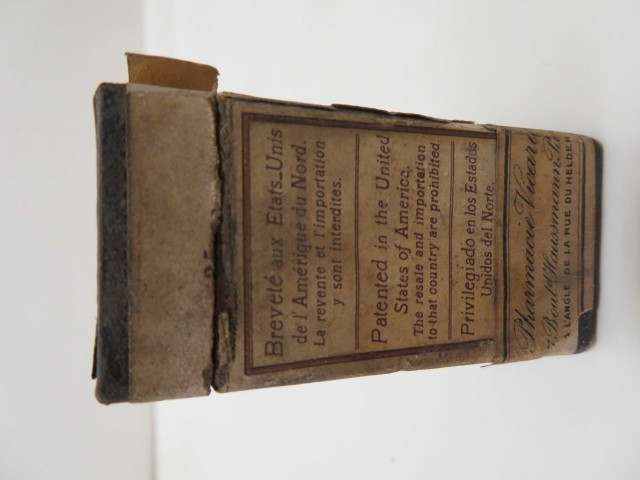 Breveté aux Etats-Unis
de l'Amérique du Nord.
La revente et l'importation
y sont interdites.
Patented in the United
States of America.
The resale and importation
to that country are prohibited.
Privilegiado en los Estados
Unidos del Norte.
Pharmacie Vicario
Boul.d Haussmann,
A L'ANGLE DE LA RUE DU HELDER